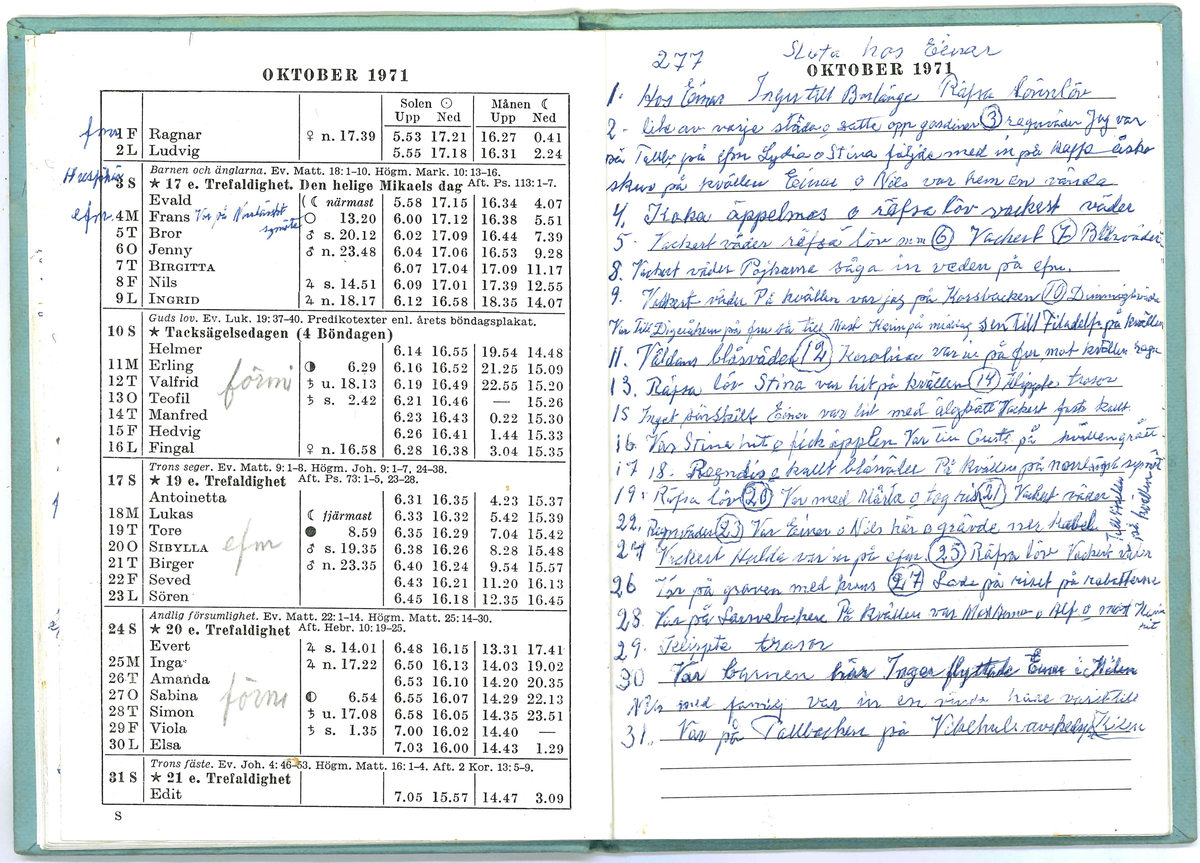 OKTOBER 1971
Solen ☉ Månen ☾
Upp Ned Upp Ned
fm
1 F Ragnar ♀ n. 17.39 5.53 17.21 16.27 0.41
2 L Ludvig 5.55 17.18 16.31 2.24
Barnen och änglarna. Ev. Matt. 18: 1-10. Högm. Mark. 10: 13-16.
3 S ★ 17 e. Trefaldighet. Den helige Mikaels dag Aft. Ps. 113: 1-7.
Evald (☾ närmast 5.58 17.15 16.34 4.07
efm
4 M Frans Var på ○ 13.20 6.00 17.12 16.38 5.51
5 T Bror ♂ s. 20.12 6.02 17.09 16.44 7.39
6 O Jenny ♂ n. 23.48 6.04 17.06 16.53 9.28
7 T BIRGITTA 6.07 17.04 17.09 11.17
8 F Nils ♃ s. 14.51 6.09 17.01 17.39 12.55
9 L INGRID ♃ n. 18.17 6.12 16.58 18.35 14.07
Guds lov. Ev. Luk. 19: 37-40. Predikotexter enl. årets böndagsplakat.
10 S ★ Tacksägelsedagen (4 Böndagen)
Helmer 6.14 16.55 19.54 14.48
11 M Erling ◑ 6.29 6.16 16.52 21.25 15.09
förmi
12 T Valfrid ♄ u. 18.13 6.19 16.49 22.55 15.20
13 O Teofil ♄ s. 2.42 6.21 16.46 — 15.26
14 T Manfred 6.23 16.43 0.22 15.30
15 F Hedvig 6.26 16.41 1.44 15.33
16 L Fingal ♀ n. 16.58 6.28 16.38 3.04 15.35
Trons seger. Ev. Matt. 9: 1-8. Högm. Joh. 9: 1-7, 24-38.
17 S ★ 19 e. Trefaldighet Aft. Ps. 73: 1-5, 23-28.
Antoinetta 6.31 16.35 4.23 15.37
18 M Lukas ☾ fjärmast 6.33 16.32 5.42 15.39
19 T Tore ● 8.59 6.35 16.29 7.04 15.42
efm
20 O SIBYLLA ♂ s. 19.35 6.38 16.26 8.28 15.48
21 T Birger ♂ n. 23.35 6.40 16.24 9.54 15.57
22 F Seved 6.43 16.21 11.20 16.13
23 L Sören 6.45 16.18 12.35 16.45
Andlig försumlighet. Ev. Matt. 22: 1-14. Högm. Matt. 25: 14-30.
24 S ★ 20 e. Trefaldighet Aft. Hebr. 10: 19-25.
Evert ♃ s. 14.01 6.48 16.15 13.31 17.41
25 M Inga ♃ n. 17.22 6.50 16.13 14.03 19.02
26 T Amanda 6.53 16.10 14.20 20.35
förmi
27 O Sabina ◐ 6.54 6.55 16.07 14.29 22.13
28 T Simon ♄ u. 17.08 6.58 16.05 14.35 23.51
29 F Viola ♄ s. 1.35 7.00 16.02 14.40 —
30 L Elsa 7.03 16.00 14.43 1.29
Trons fäste. Ev. Joh. 4: 46-53. Högm. Matt. 16: 1-4. Aft. 2 Kor. 13: 5-9.
31 S ★ 21 e. Trefaldighet
Edit 7.05 15.57 14.47 3.09
S
277 Sluta hos Einar
OKTOBER 1971
1. Hos Einar Inger till Borlänge Räfsa lönnlöv
2. lite av varje städa o satte opp gardiner 3 regnväder Jag var
på efm Lydia o Stina följde med in på kaffe
på kvällen Einar o Nils var hem en vända
4. Koka äppelmos o räfsa löv vackert väder
5. Vackert väder räfsa löv mm 6 Vackert 7 Blåsväder
8. Vackert väder Pojkarna såga in veden på efm.
9. Vackert väder På kvällen var jag på Korsbacken 10
Var till på fm till middag sen till Filadelfia på kvällen
11. blåsväder 12 Karolina var in på fm mot kvällen regn
13. Räfsa löv Stina var hit på kvällen 14 klippte trasor
15 Inget särskilt Einar var hit med älgkött Vackert kallt
16. Var Stina hit o fick äpplen Var på kvällen grått
17 18. kallt blåsväder På kvällen på symöt
19. Räfsa löv 20 Var med Märta o tog ris 21 Vackert väder
på kvällen
22. Regnväder 23 Var Einar o Nils här o grävde ner kabel
24 Vackert Hulda var in på efm 25 Räfsa löv Vackert väder
26 Var på graven med krans 27 Lade på riset på rabatterna
28. Var på På kvällen var o Alf o
hit
29. klippte trasor
30 Var barnen här Inger flyttade Einar i
Nils med familj var in en vända
31. Var på Tallbacken på